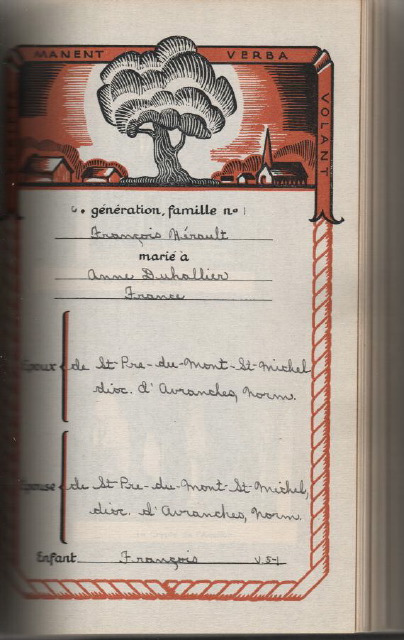 MANENT VERBA VOLANT
6. génération, famille no 1
François Hérault
marié à
Anne Duhallier
France
Époux de St-Pre-du-Mont-St-Michel
dioc. d'Avranches, Norm.
Épouse de St-Pre-du-Mont-St-Michel,
dioc. d'Avranches, Norm.
Enfant François V 5-1